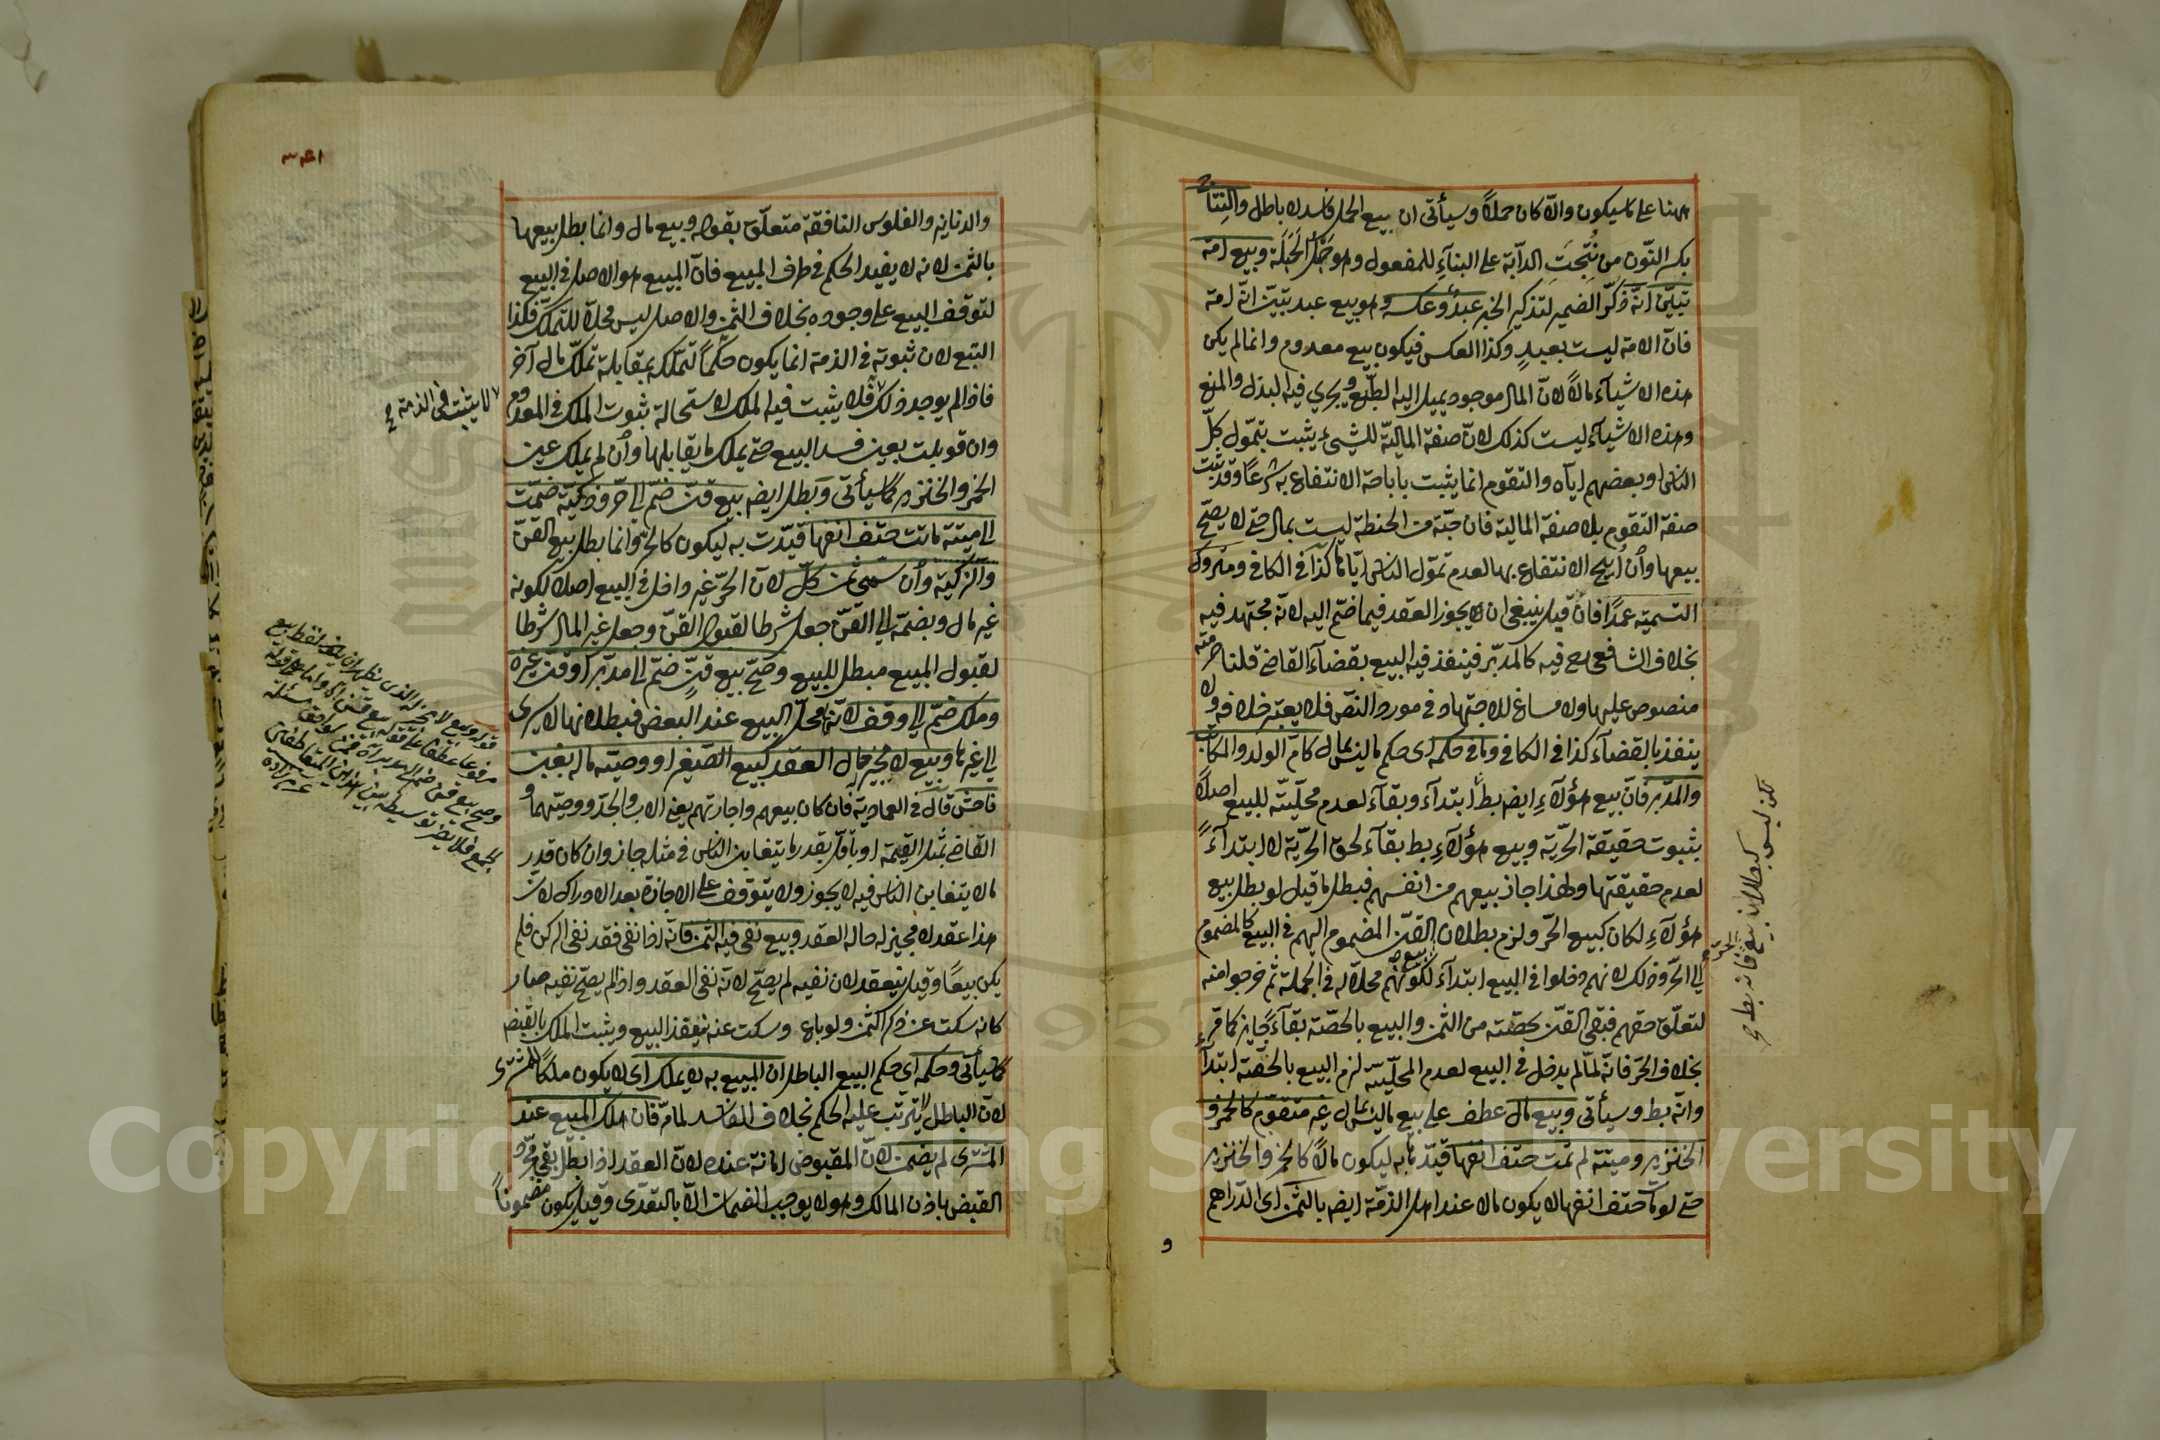 ههنا على ما سيكون والا كان حملاً وسيأتى ان بيع الحمل فاسد لا باطل والنتاج
بكسر النون من نُتِجَتِ الدابة على البناءِ للمفعول وهو حَبَلُ الحَبَلَةِ وبيع امة
تبيّن انه ذكّر الضمير لتذكير الخبر عبدٌ وعكسه وهو بيع عبد تبيّن انه امة
فان الامة ليست بعبدٍ وكذا العكس فيكون بيع معدوم وانما لم يكن
هذه الاشياء مالاً لان المال موجود يميل اليه الطبع ويجري فيه البذل والمنع
وهذه الاشياء ليست كذلك لان صفة المالية للشيء يثبت بتموّل كلّ
الناس او بعضهم اياه والتقوم انما يثبت باباحة الانتفاع به شرعًا وقد يثبت
صفة التقوم بلا صفة المالية فان حبّة من الحنطة ليست بمال حتى لا يصحّ
بيعها وان ابيح الانتفاع بها لعدم تموّل الناس اياها كذا فى الكافى ومتروك
التسمية عمدًا فان قيل ينبغى ان يجوز العقد فيما ضمّ اليه لانه مجتهد فيه
بخلاف الشافعى رح فيه كالمدبّر فينفذ فيه البيع بقضاء القاضى قلنا حرمته
منصوص عليها ولا مساغ للاجتهاد فى مورد النص فلا يعتبر خلافه ولا
ينفذ بالقضاء كذا فى الكافى وما فى حكمه اى حكم ما ليس بمال كام الولد والمكاتب
والمدبّر فان بيع هؤلاءِ ايضا بط ابتداء وبقاء لعدم محلّيته للبيع اصلاً
بثبوت حقيقة الحرّية وبيع هؤلاءِ بط بقاء لحق الحرّية لا ابتداءً
لعدم حقيقتها ولهذا جاز بيعهم من انفسهم فبطل ما قيل لو بطل بيع
هؤلاءِ لكان كبيع الحرّ ولزم بطلان بيع القنّ المضموم اليهم فى البيع كالمضموم
الى الحرّ وذلك لانهم دخلوا فى البيع ابتداء لكونهم محلا له فى الجملة ثم خرجوا منه
لتعلّق حقهم فبقى القنّ بحصّته من الثمن والبيع بالحصّة بقاءً جايز كما مرّ
بخلاف الحرّ فانه لمّا لم يدخل فى البيع لعدم المحلّيّة لزم البيع بالحصّة ابتداءً
وانه بط وسيأتى وبيع مال عطف على بيع ما ليس بمال غير متقوّم كالخمر و
الخنزير وميتة لم تمت حتف انفها قيّد به ليكون مالاً كالخمر والخنزير
حتى لو ماتت حتف انفها لا يكون مالا عند اهل الذمّة ايضا بالثمن اى الدراهم
و
لكن ليس كبطلان بيع الحرّ فانه بط
٣٤١
والدنانير والفلوس النافقة متعلّق بقوله وبيع مال وانما بطل بيعها
بالثمن لانه لا يفيد الحكم فى طرف المبيع فان المبيع هو الاصل فى البيع
لتوقف البيع على وجوده بخلاف الثمن والاصل ليس محلا للتملك فكذا
التبع لان ثبوته فى الذمة انما يكون حكمًا لتملكه بمقابلة تملّك مال آخر
فاذا لم يوجد ذلك فلا يثبت فيه الملك لاستحالة ثبوت الملك فى المعدوم
لا يثبت فى الذمة
وان قوبلت بعين فسد البيع حتى يملك ما يقابلها وان لم يملك عين
الخمر والخنزير كما سيأتى وبطل ايضا بيع قنّ ضمّ الى حرّ وذكيّة ضمّت
الى ميتة ماتت حتف انفها قيّدت به ليكون كالحرّ وانما بطل بيع القنّ
والذكية وان سمى ثمن كلّ لان الحرّ غير داخل فى البيع اصلا لكونه
غير مال وبضمّه الى القنّ جعل شرطا لقبول القنّ وجعل غير المال شرطا
لقبول المبيع مبطل للبيع وصحّ بيع قنّ ضمّ الى مدبّر او قنّ غيره
وملك ضمّ الى وقف لانه محلّ البيع عند البعض فبطلانه لا يسرى
الى غيرها وبيع لا مجيز له حال العقد كبيع الصغير او وصيّه ماله بغبن
فاحش قال فى العمادية فان كان بيعهم واجارتهم يعنى الاب والجدّ ووصيّهما و
القاضى بمثل القيمة او باقل بقدر ما يتغابن الناس فى مثله جاز وان كان قدر
ما لا يتغابن الناس فيه لا يجوز ولا يتوقف على الاجازة بعد الادراك لان
هذا عقد لا مجيز له حالة العقد وبيع نفى فيه الثمن فانه اذا نفى فقد نفى الركن فلم
يكن بيعًا وقيل ينعقد لان نفيه لم يصحّ لانه نفى العقد واذا لم يصحّ نفيه صار
كانه سكت عن ذكر الثمن ولو باع وسكت عنه ينعقد البيع ويثبت الملك بالقبض
كما سيأتى وحكمه اى حكم البيع الباطل ان المبيع به لا يملك اى لا يكون ملكًا للمشترى
لان الباطل لا يترتب عليه الحكم بخلاف الفاسد لما مرّ فان هلك المبيع عند
المشترى لم يضمن لان المقبوض امانة عنده لان العقد اذا بطل بقى مجرّد
القبض باذن المالك وهو لا يوجب الضمان الا بالتعدّى وقيل يكون مضمونًا